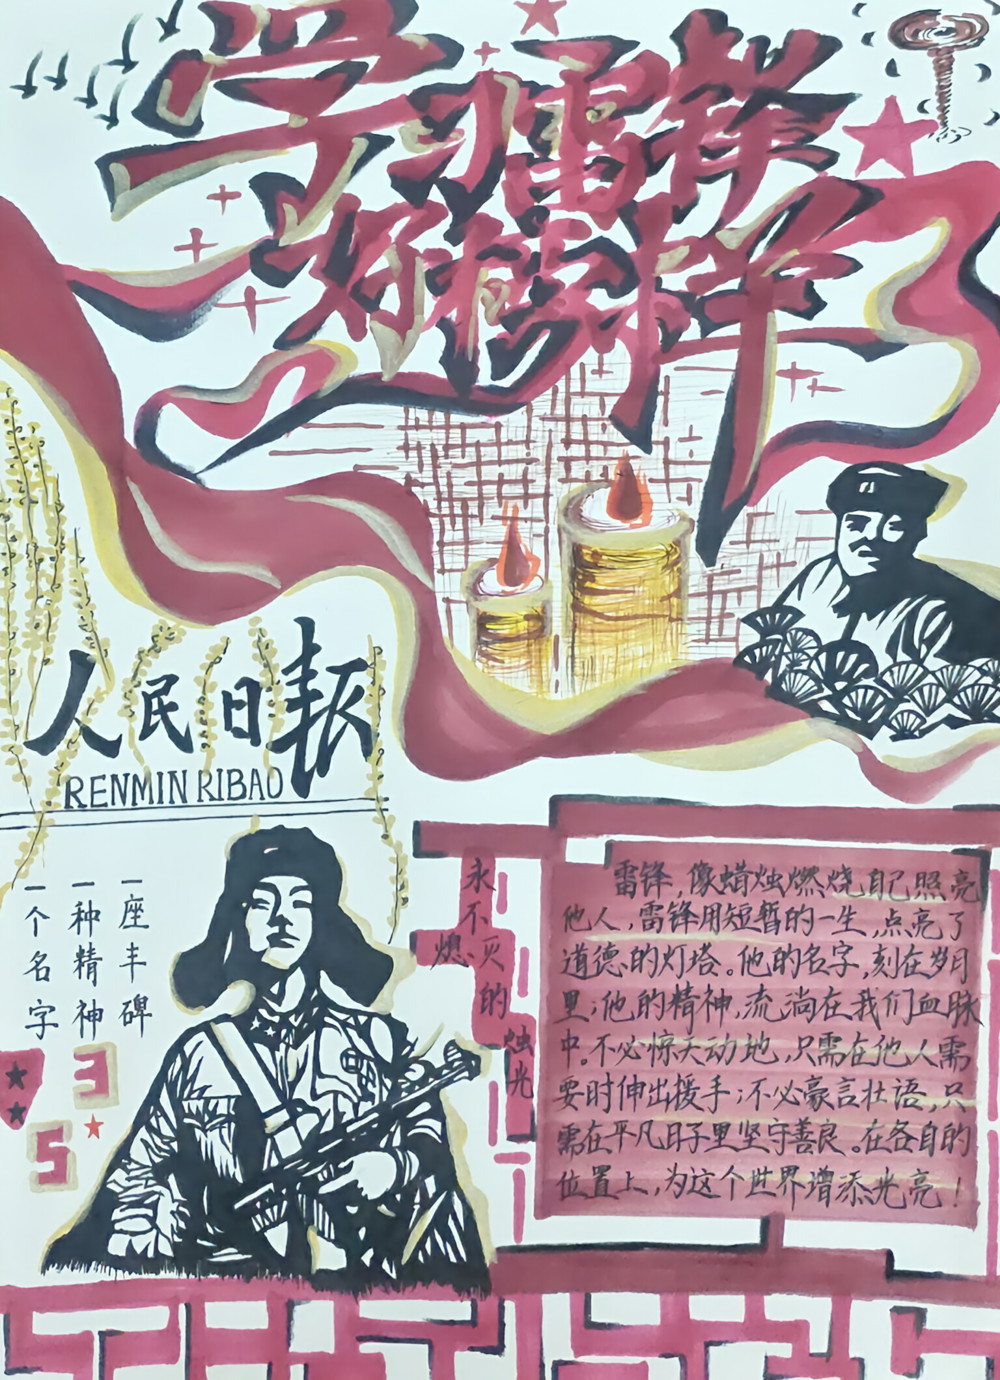 学习雷锋
好榜样
人民日报
RENMIN RIBAO
一座丰碑
一种精神
一个名字
3
5
永不灭的
熄
烛光
雷锋，像蜡烛燃烧自己照亮
他人，雷锋用短暂的一生，点亮了
道德的灯塔。他的名字，刻在岁月
里；他的精神，流淌在我们血脉
中。不必惊天动地，只需在他人需
要时伸出援手；不必豪言壮语，只
需在平凡日子里坚守善良。在各自的
位置上，为这个世界增添光亮！